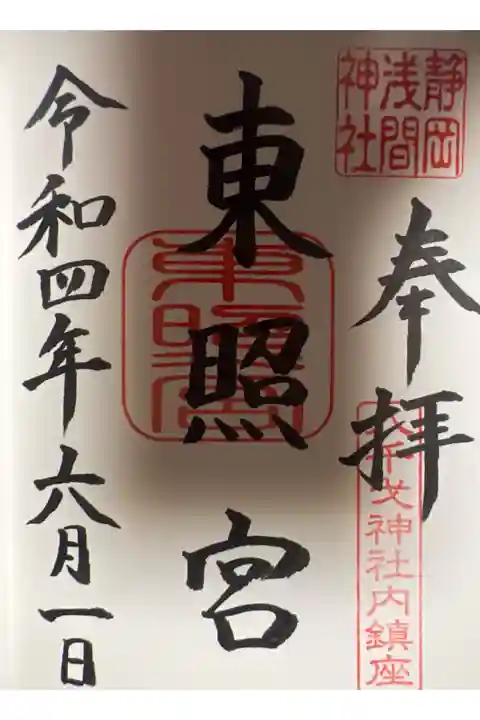 静岡
浅間
神社
奉拝
八千戈神社内鎮座
東照宮
東照宮
令和四年六月一日